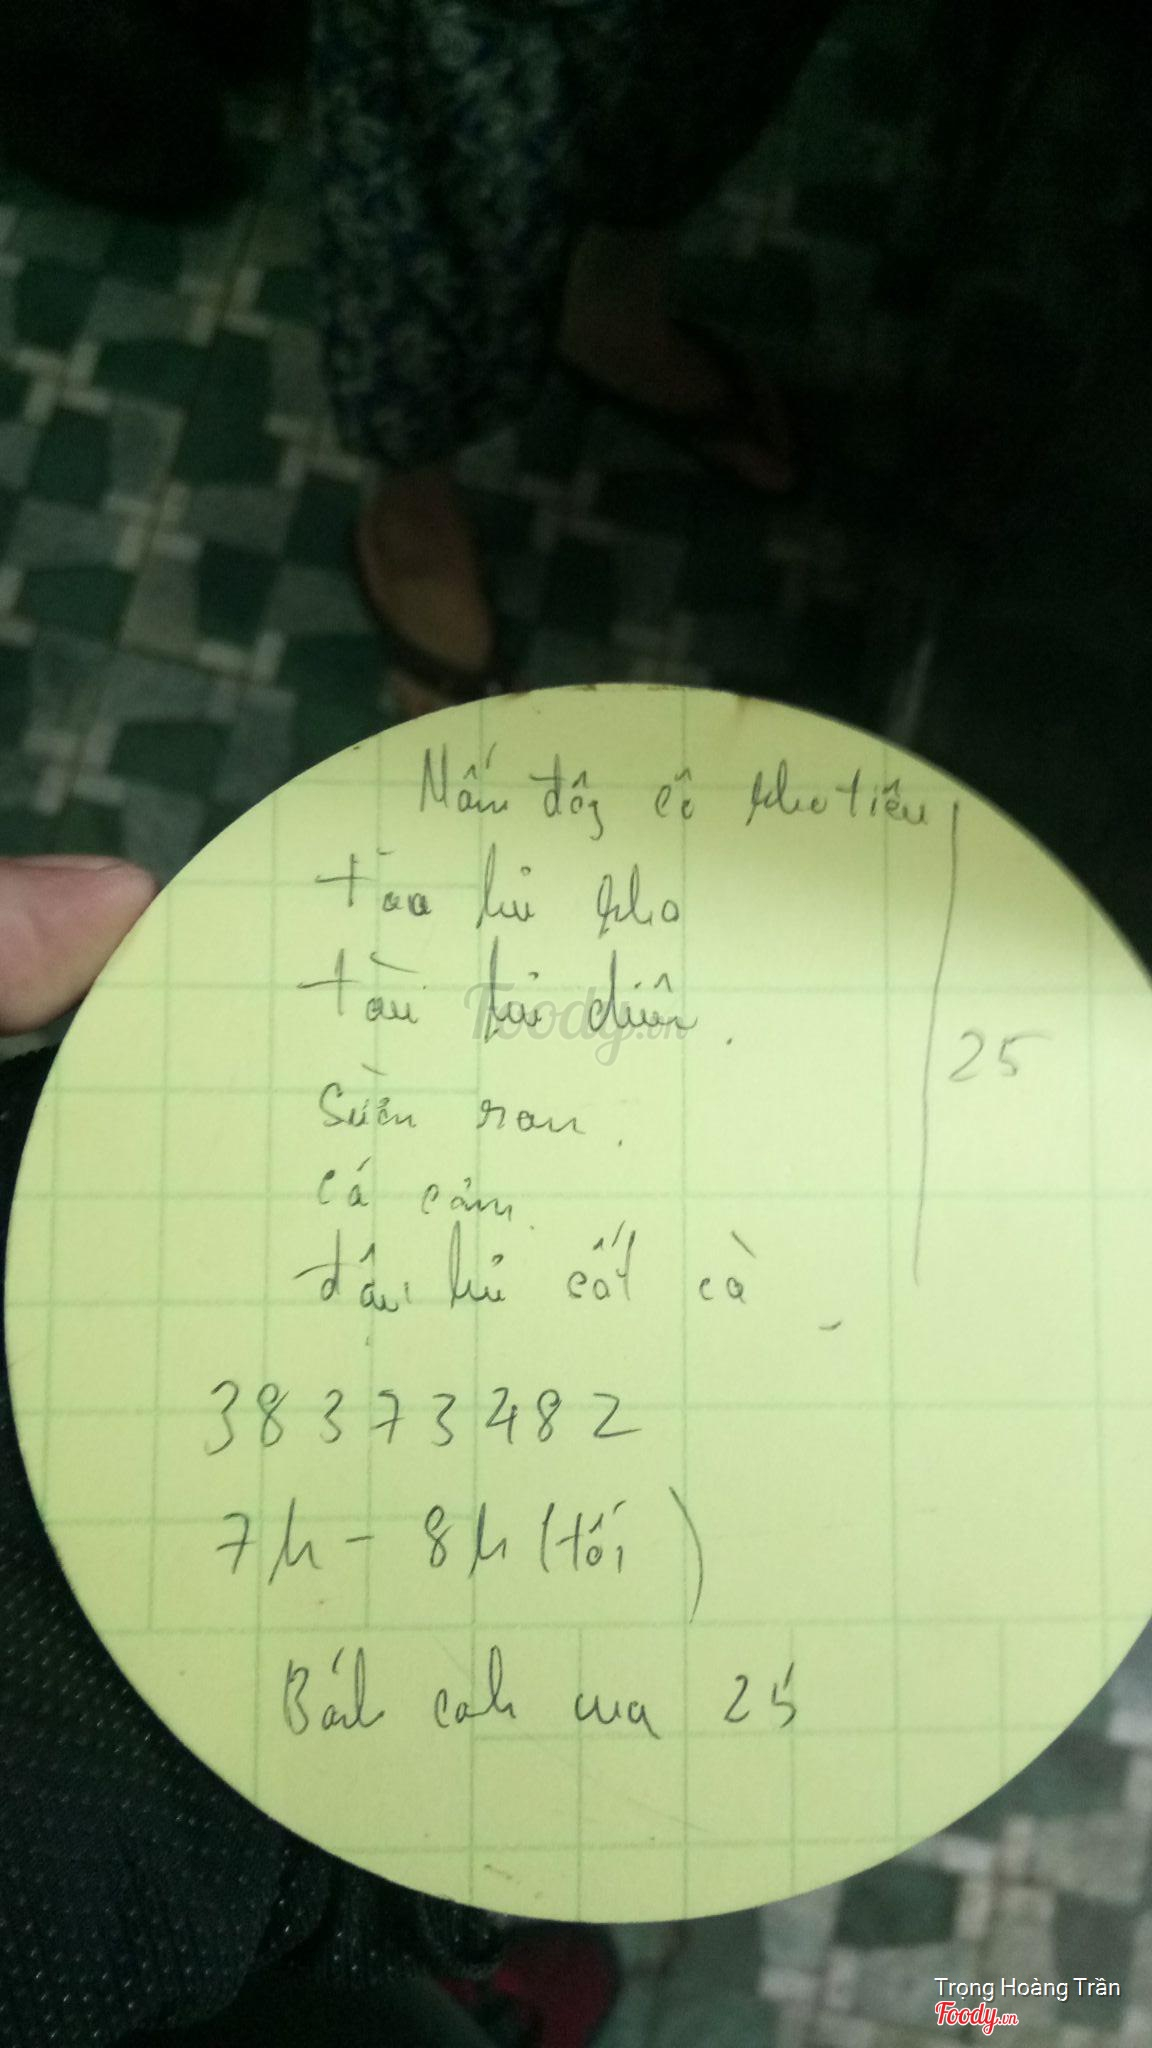 Nấm đông cô kho tiêu
tàu hủ kho
tàu hủ chiên.
Sườn ram.
25
cá cơm.
đậu hủ cốt cà
38373482
7h - 8h (tối)
Bánh canh cua 25
Foody.vn
Trọng Hoàng Trần
Foody.vn